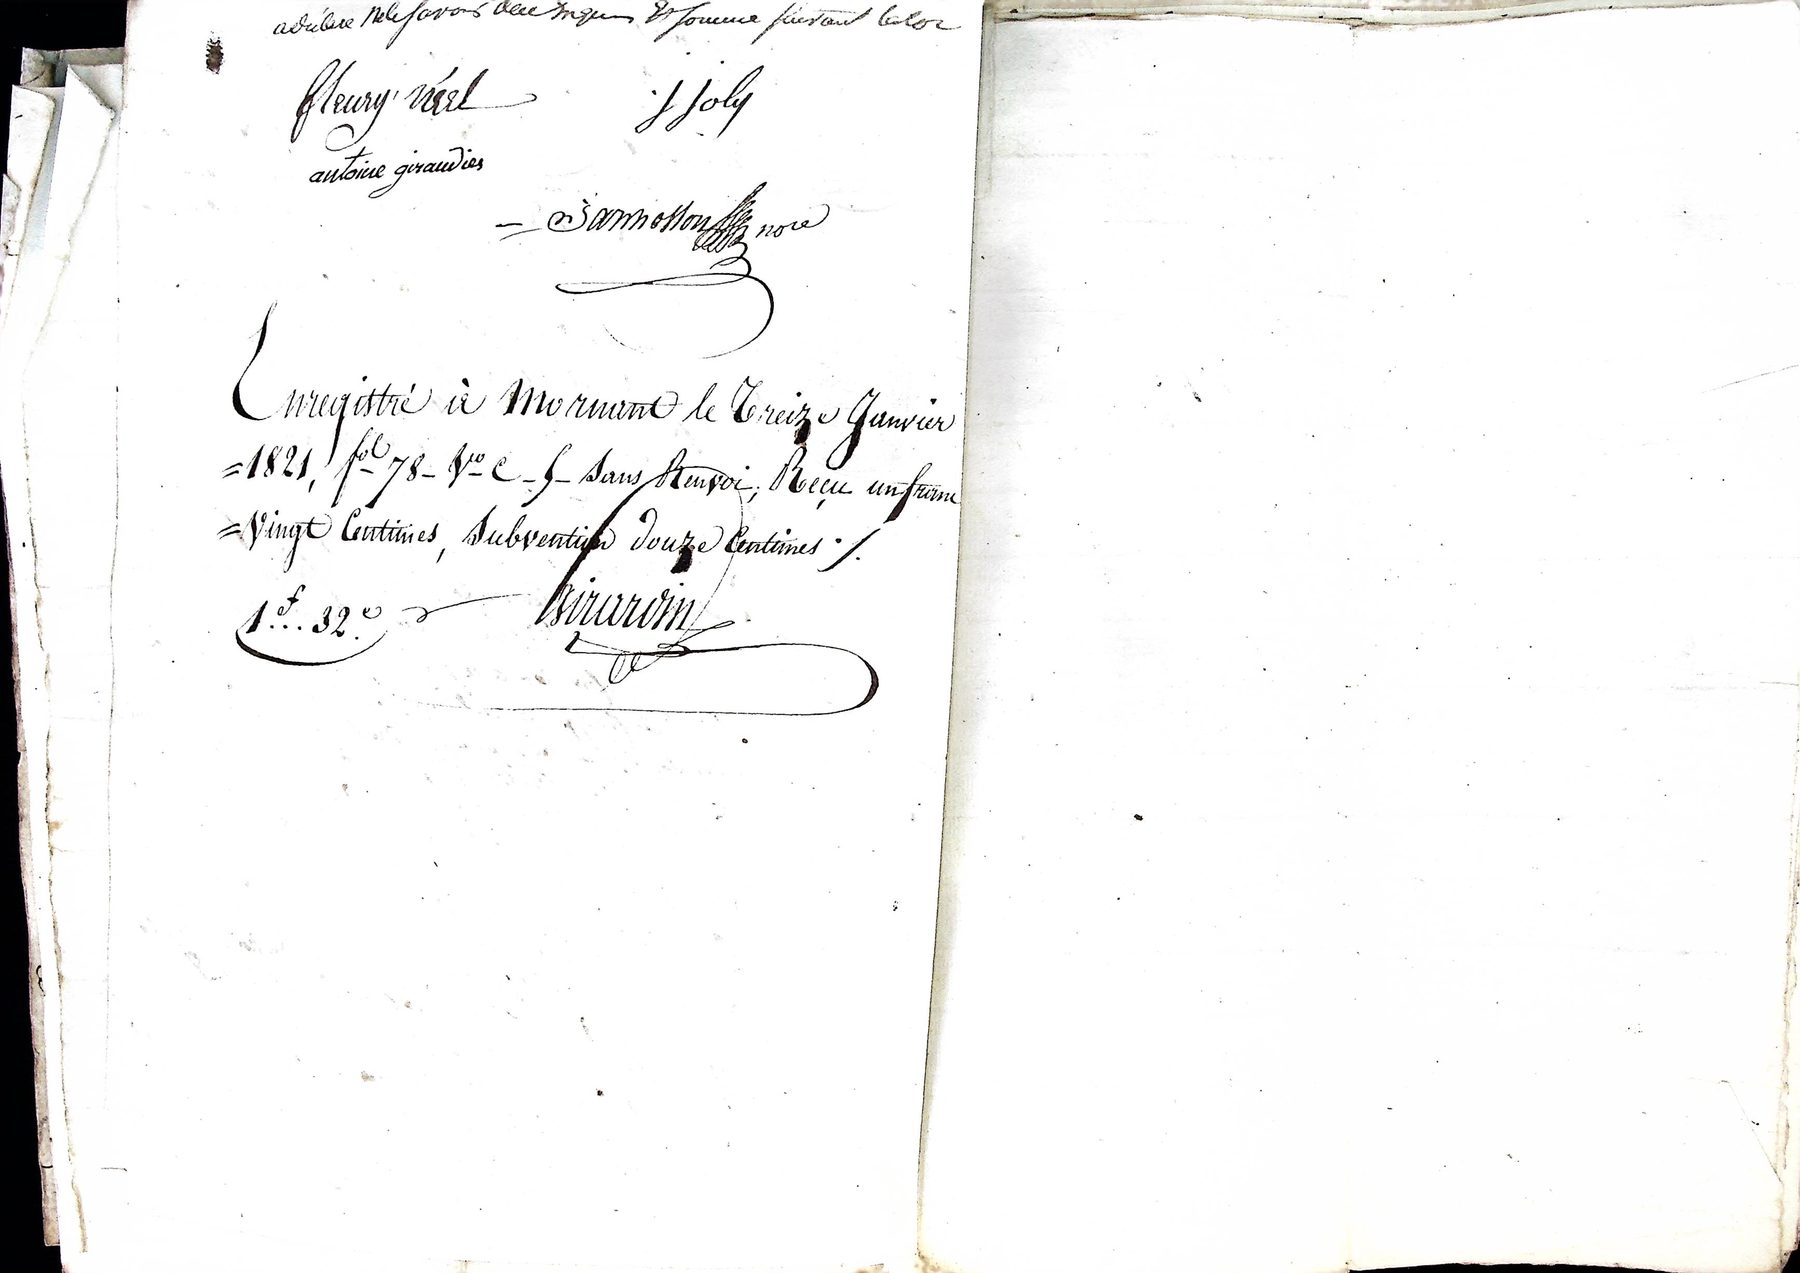 a déclaré ne le savoir de ce enquis et sommé suivant la loi
fleury véel
j joly
antoine giraudier
nore
Enregistré à Mornant le Treize Janvier
= 1821, fol 78 - Vo C - 5 - Sans Renvoi, Reçu un franc
= Vingt Centimes, Subvention douze Centimes ./.
1f.. 32c
Girardin